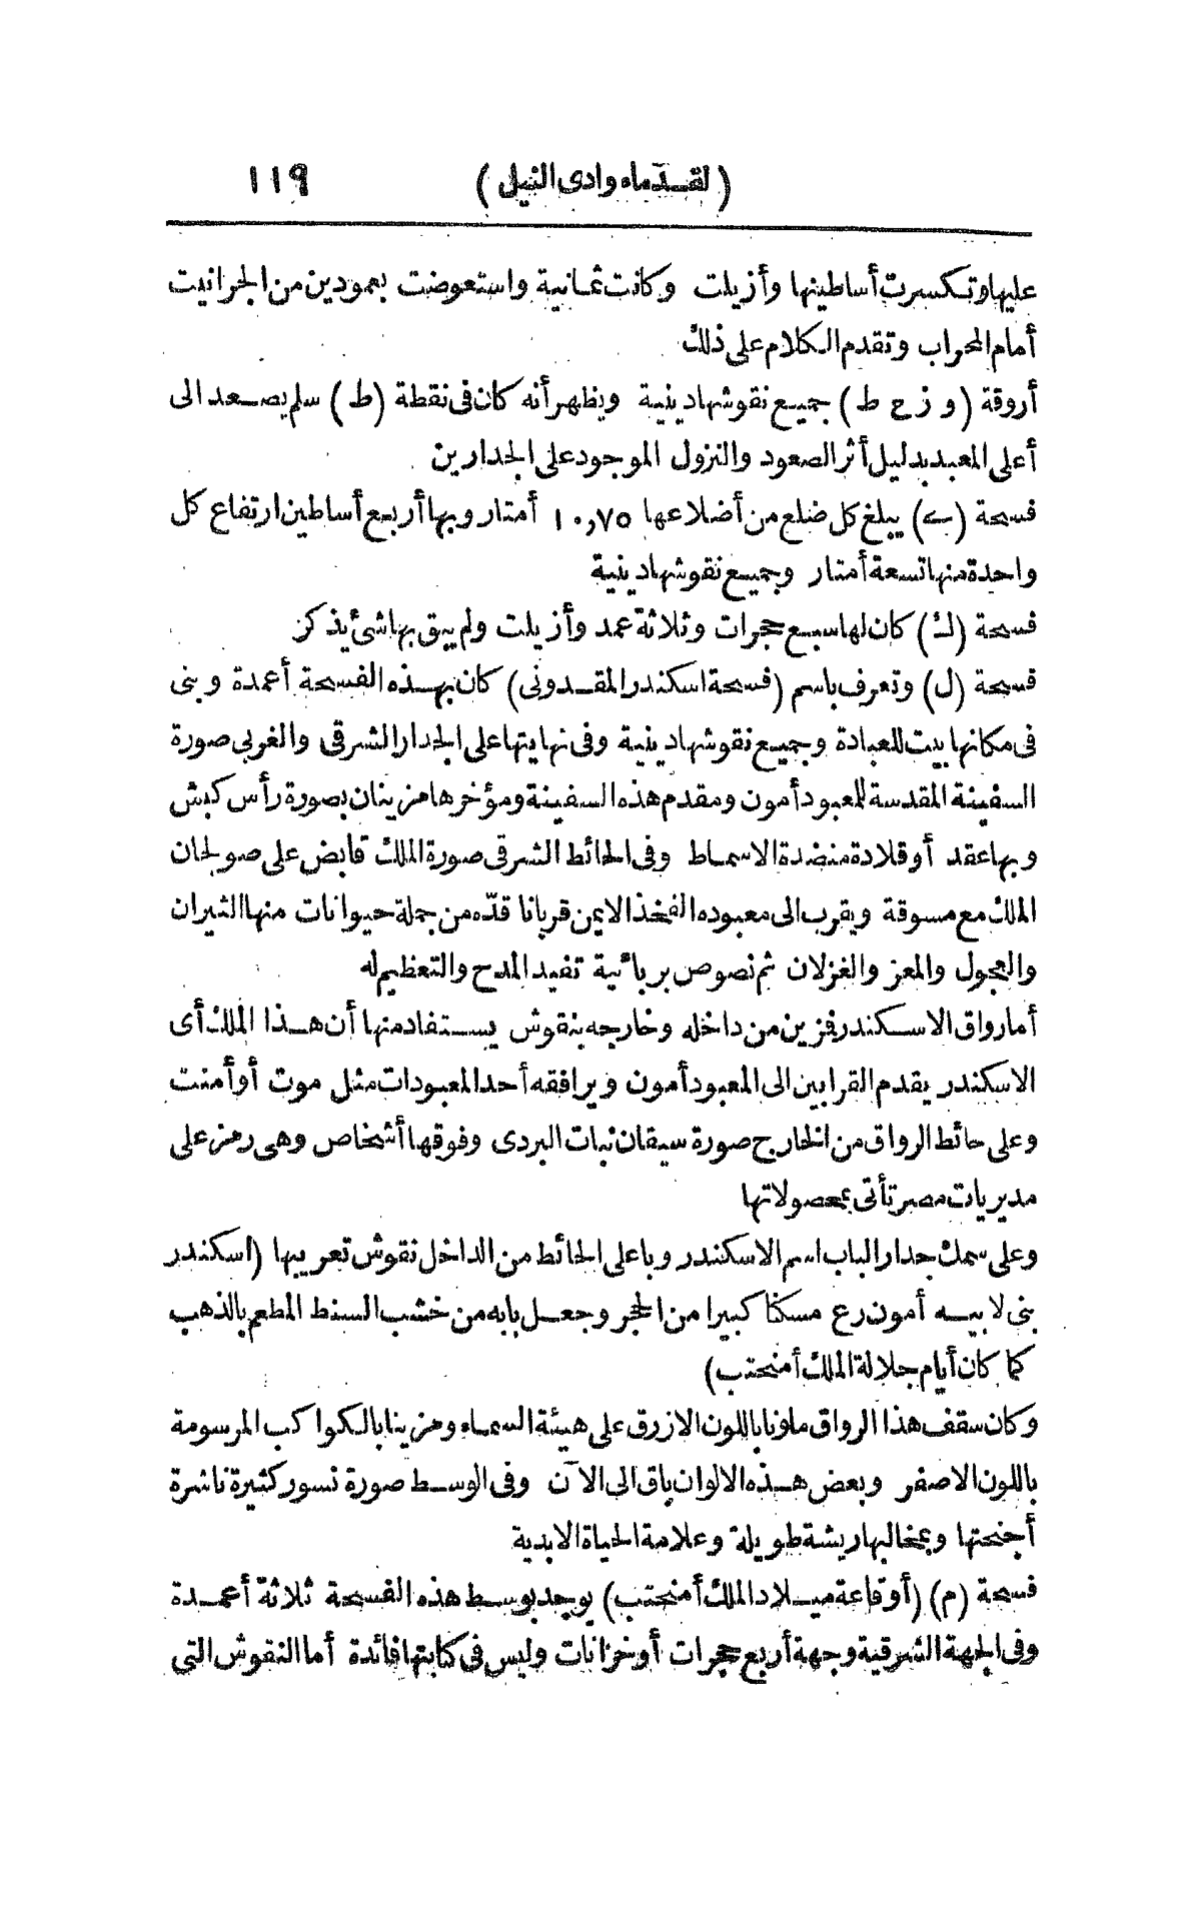 (لقدماء وادى النيل) ١١٩
عليها وتكسرت أساطينها وأزيلت وكانت ثمانية واستعوضت بعمودين من الجرانيت
أمام المحراب وتقدم الكلام على ذلك
أروقة (و ز ح ط) جميع نقوشها دينية ويظهر أنه كان فى نقطة (ط) سلم يصعد الى
أعلى المعبد بدليل أثر الصعود والنزول الموجود على الجدارين
فسحة (ى) يبلغ كل ضلع من أضلاعها ١٠,٧٥ أمتار وبها أربع أساطين ارتفاع كل
واحدة منها تسعة أمتار وجميع نقوشها دينية
فسحة (ك) كان لها سبع حجرات وثلاثة عمد وأزيلت ولم يبق بها شئ يذكر
فسحة (ل) وتعرف باسم (فسحة اسكندر المقدونى) كان بهذه الفسحة أعمدة وبنى
فى مكانها بيت للعبادة وجميع نقوشها دينية وفى نهايتها على الجدار الشرقى والغربى صورة
السفينة المقدسة للمعبود أمون ومقدم هذه السفينة ومؤخرها مزينان بصورة رأس كبش
وبها عقد أو قلادة منضدة الاسماط وفى الحائط الشرقى صورة الملك قابض على صولجان
الملك مع مسوقة ويقرب الى معبوده الفخذ الايمن قربانا قدّه من جملة حيوانات منها الثيران
والعجول والمعز والغزلان ثم نصوص بربائية تفيد المدح والتعظيم له
أما رواق الاسكندر فزين من داخله وخارجه بنقوش يستفاد منها أن هذا الملك أى
الاسكندر يقدم القرابين الى المعبود أمون ويرافقه أحد المعبودات مثل موت أو أمنت
وعلى حائط الرواق من الخارج صورة سيقان نبات البردى وفوقها أشخاص وهى رمز على
مديريات مصر تأتى بمحصولاتها
وعلى سمك جدار الباب اسم الاسكندر وباعلى الحائط من الداخل نقوش تعريبها (اسكندر
بنى لابيه أمون رع مسكنا كبيرا من الحجر وجعل بابه من خشب السنط المطعم بالذهب
كما كان أيام جلالة الملك أمنحتب)
وكان سقف هذا الرواق ملونا باللون الازرق على هيئة السماء ومزينا بالكواكب المرسومة
باللون الاصفر وبعض هذه الالوان باق الى الآن وفى الوسط صورة نسور كثيرة ناشرة
أجنحتها وبمخالبها ريشة طويلة وعلامة الحياة الابدية
فسحة (م) (أو قاعة ميلاد الملك أمنحتب) يوجد بوسط هذه الفسحة ثلاثة أعمدة
وفى الجهة الشرقية وجهة أربع حجرات أو خزانات وليس فى كتابتها فائدة أما النقوش التى